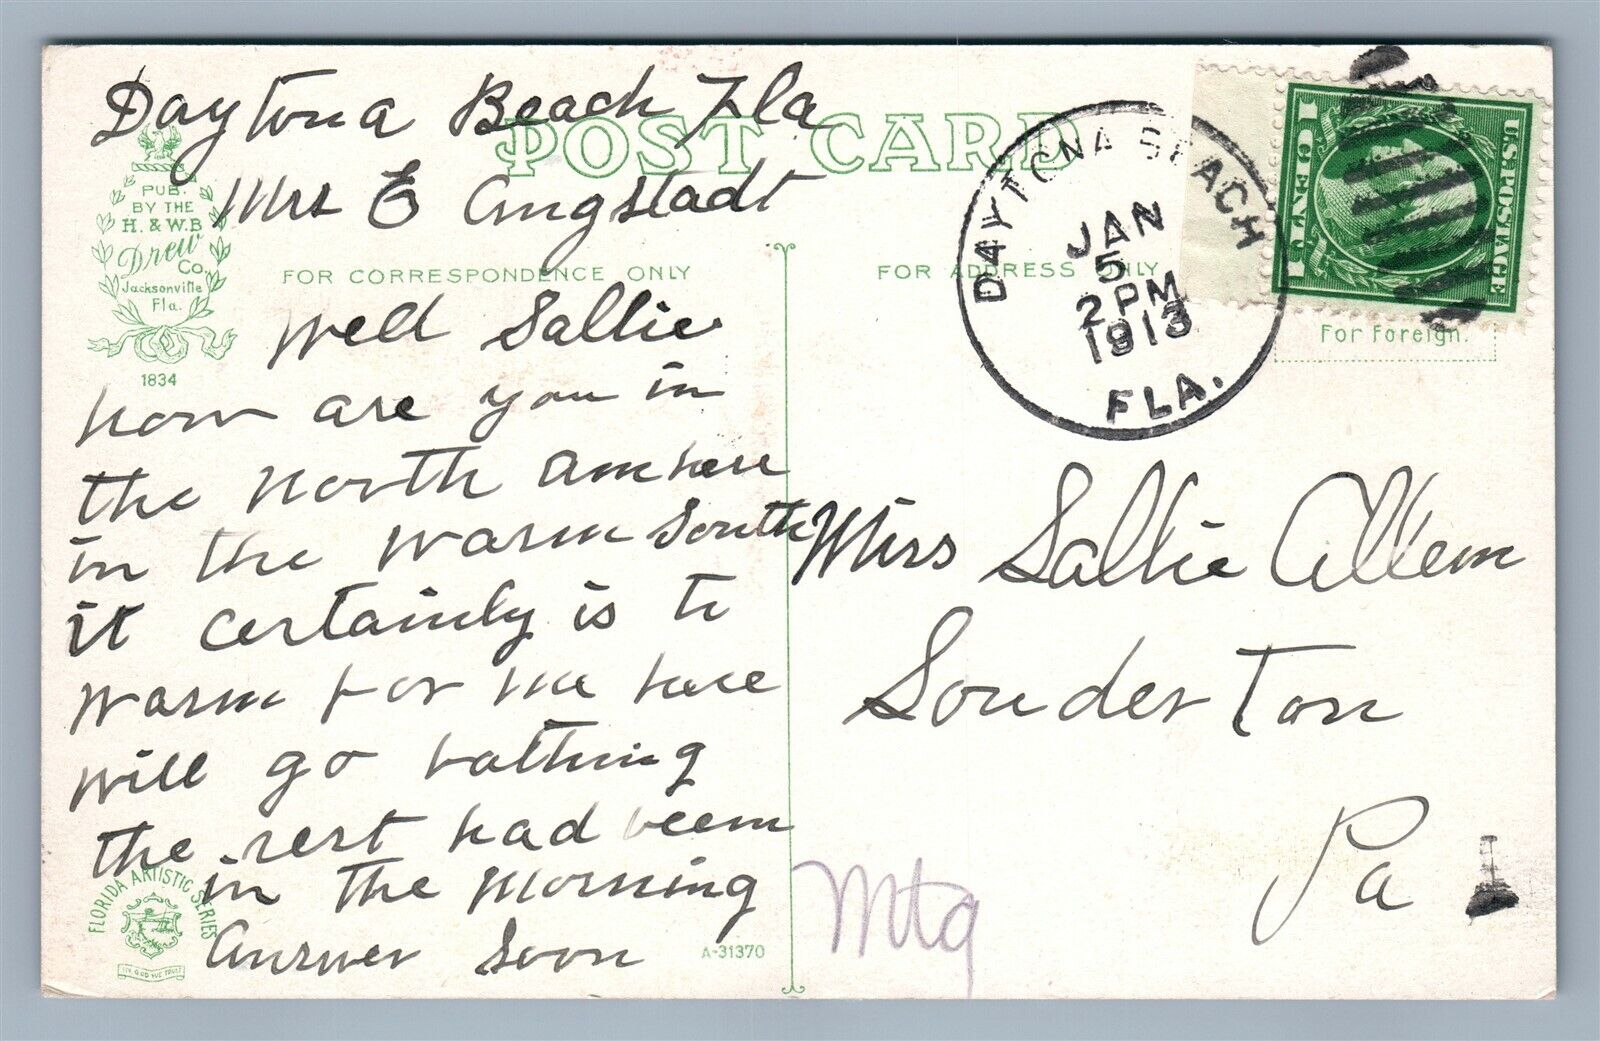 Daytona Beach Fla
POST CARD
Mrs E Angstadt
PUB.
BY THE
H. & W.B
Drew
Co.
Jacksonville
Fla.
1834
FOR CORRESPONDENCE ONLY
Well Sallie
how are you in
the north am here
in the warm South
it certainly is to
warm for me here
will go bathing
the rest had beem
in the morning
Answer Soon
FLORIDA ARTISTIC SERIES
IN GOD WE TRUST
A-31370
FOR ADDRESS ONLY
DAYTONA BEACH
JAN
5
2 PM
1913
FLA.
U.S. POSTAGE
1 CENT 1
For Foreign.
Miss Sallie Allem
Souderton
Pa
Mtg
1